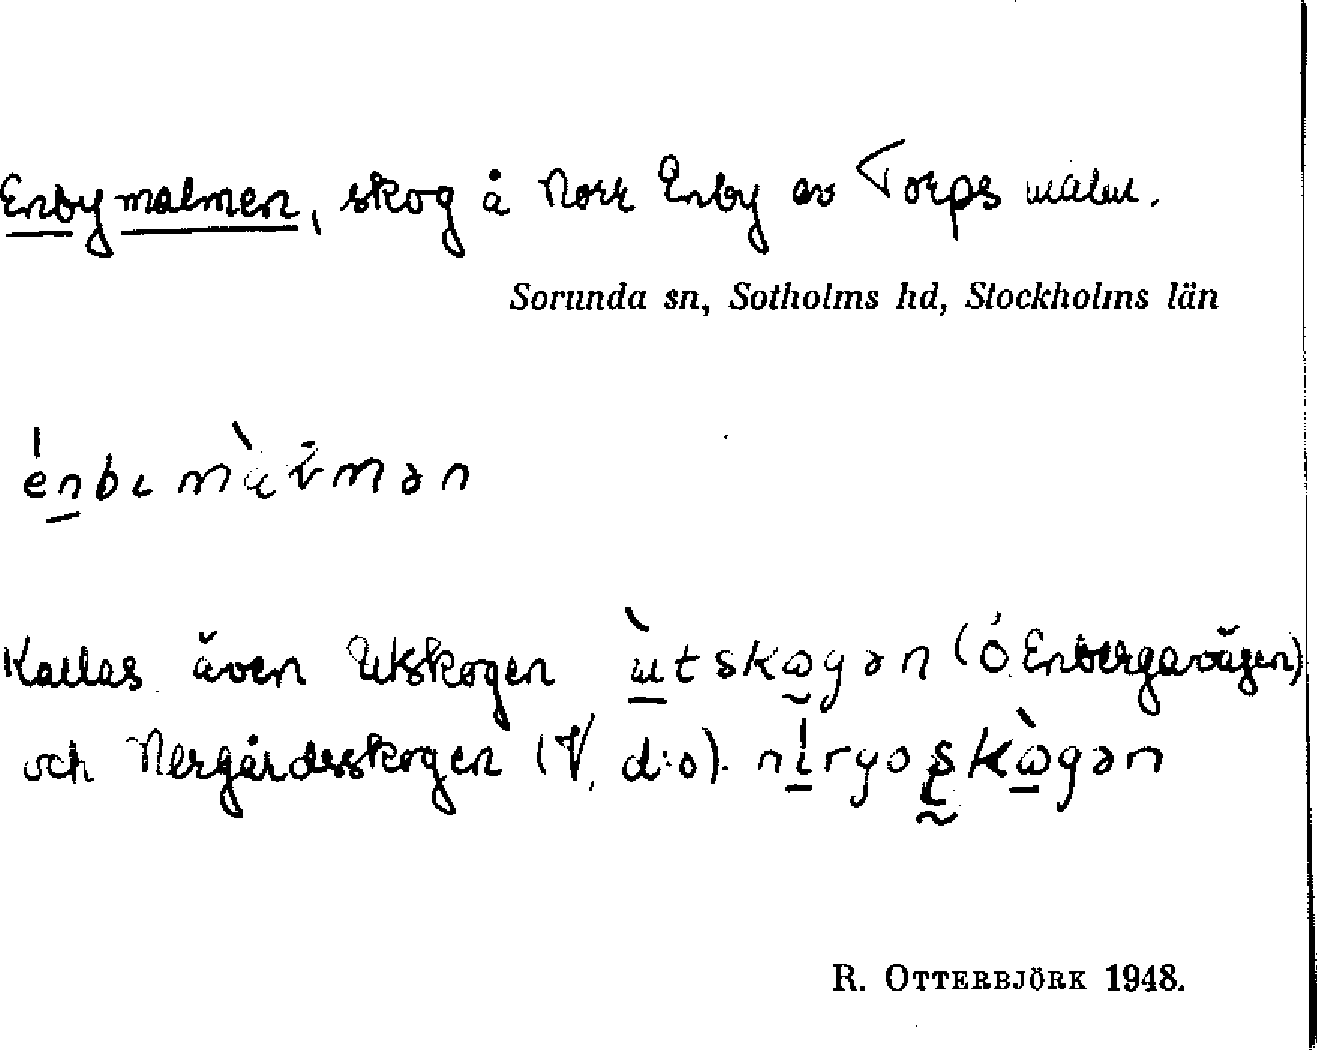 Enbymalmen, skog å Norr Enby av Torps malm.
Sorunda sn, Sotholms hd, Stockholms län
énbɩ màlmən
Kallas även Utskogen ùtskogən (Ö Enbergavägen)
och Nergårdsskogen (V. d:o). nírgosskògən
R. OTTERBJÖRK 1948.